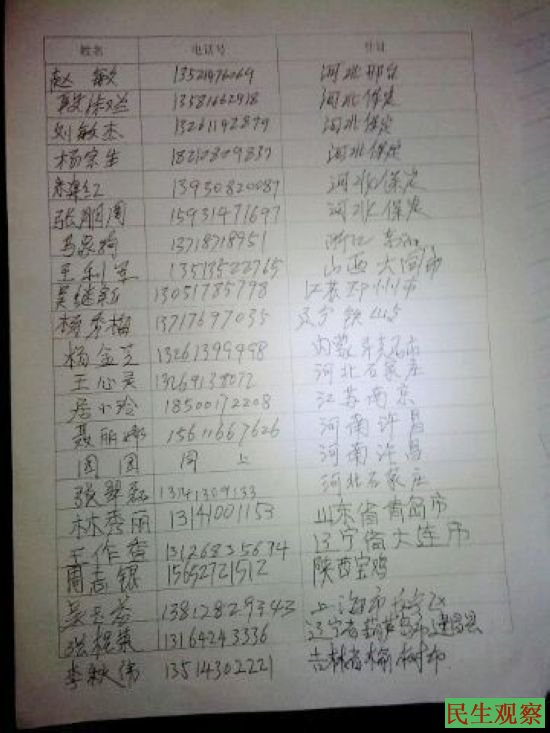 姓名 电话号 住址
赵敏 13521476069 河北邢台
13581662918 河北保定
刘敏杰 13261192879 河北保定
杨宗生 18212809837 河北保定
13930820087 河北保定
张朋周 15931471697 河北保定
13718718951 浙江
13513522765 山西大同市
吴继新 13051785798 江苏邳州市
杨秀梅 13717697035 辽宁铁岭市
杨金芝 13261399498 内蒙
王心灵 13269138072 河北石家庄
居小玲 18500172208 江苏南京
聂丽娜 15611667626 河南许昌
园园 同上 河南许昌
张翠磊 13741309133 河北石家庄
林秀丽 13141001153 山东省青岛市
王作香 13126835694 辽宁省大连市
周志银 15652721512 陕西宝鸡
13812829343 上海市
13164243336 辽宁省葫芦岛市建昌县
李秋伟 13514302221 吉林省榆树市
民生观察